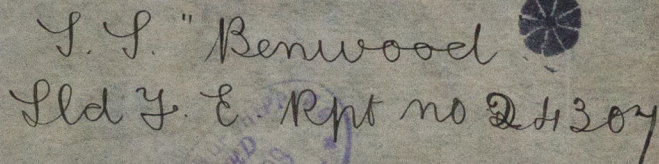 S. S. "Benwood
Sld F. E. Rpt no 24307